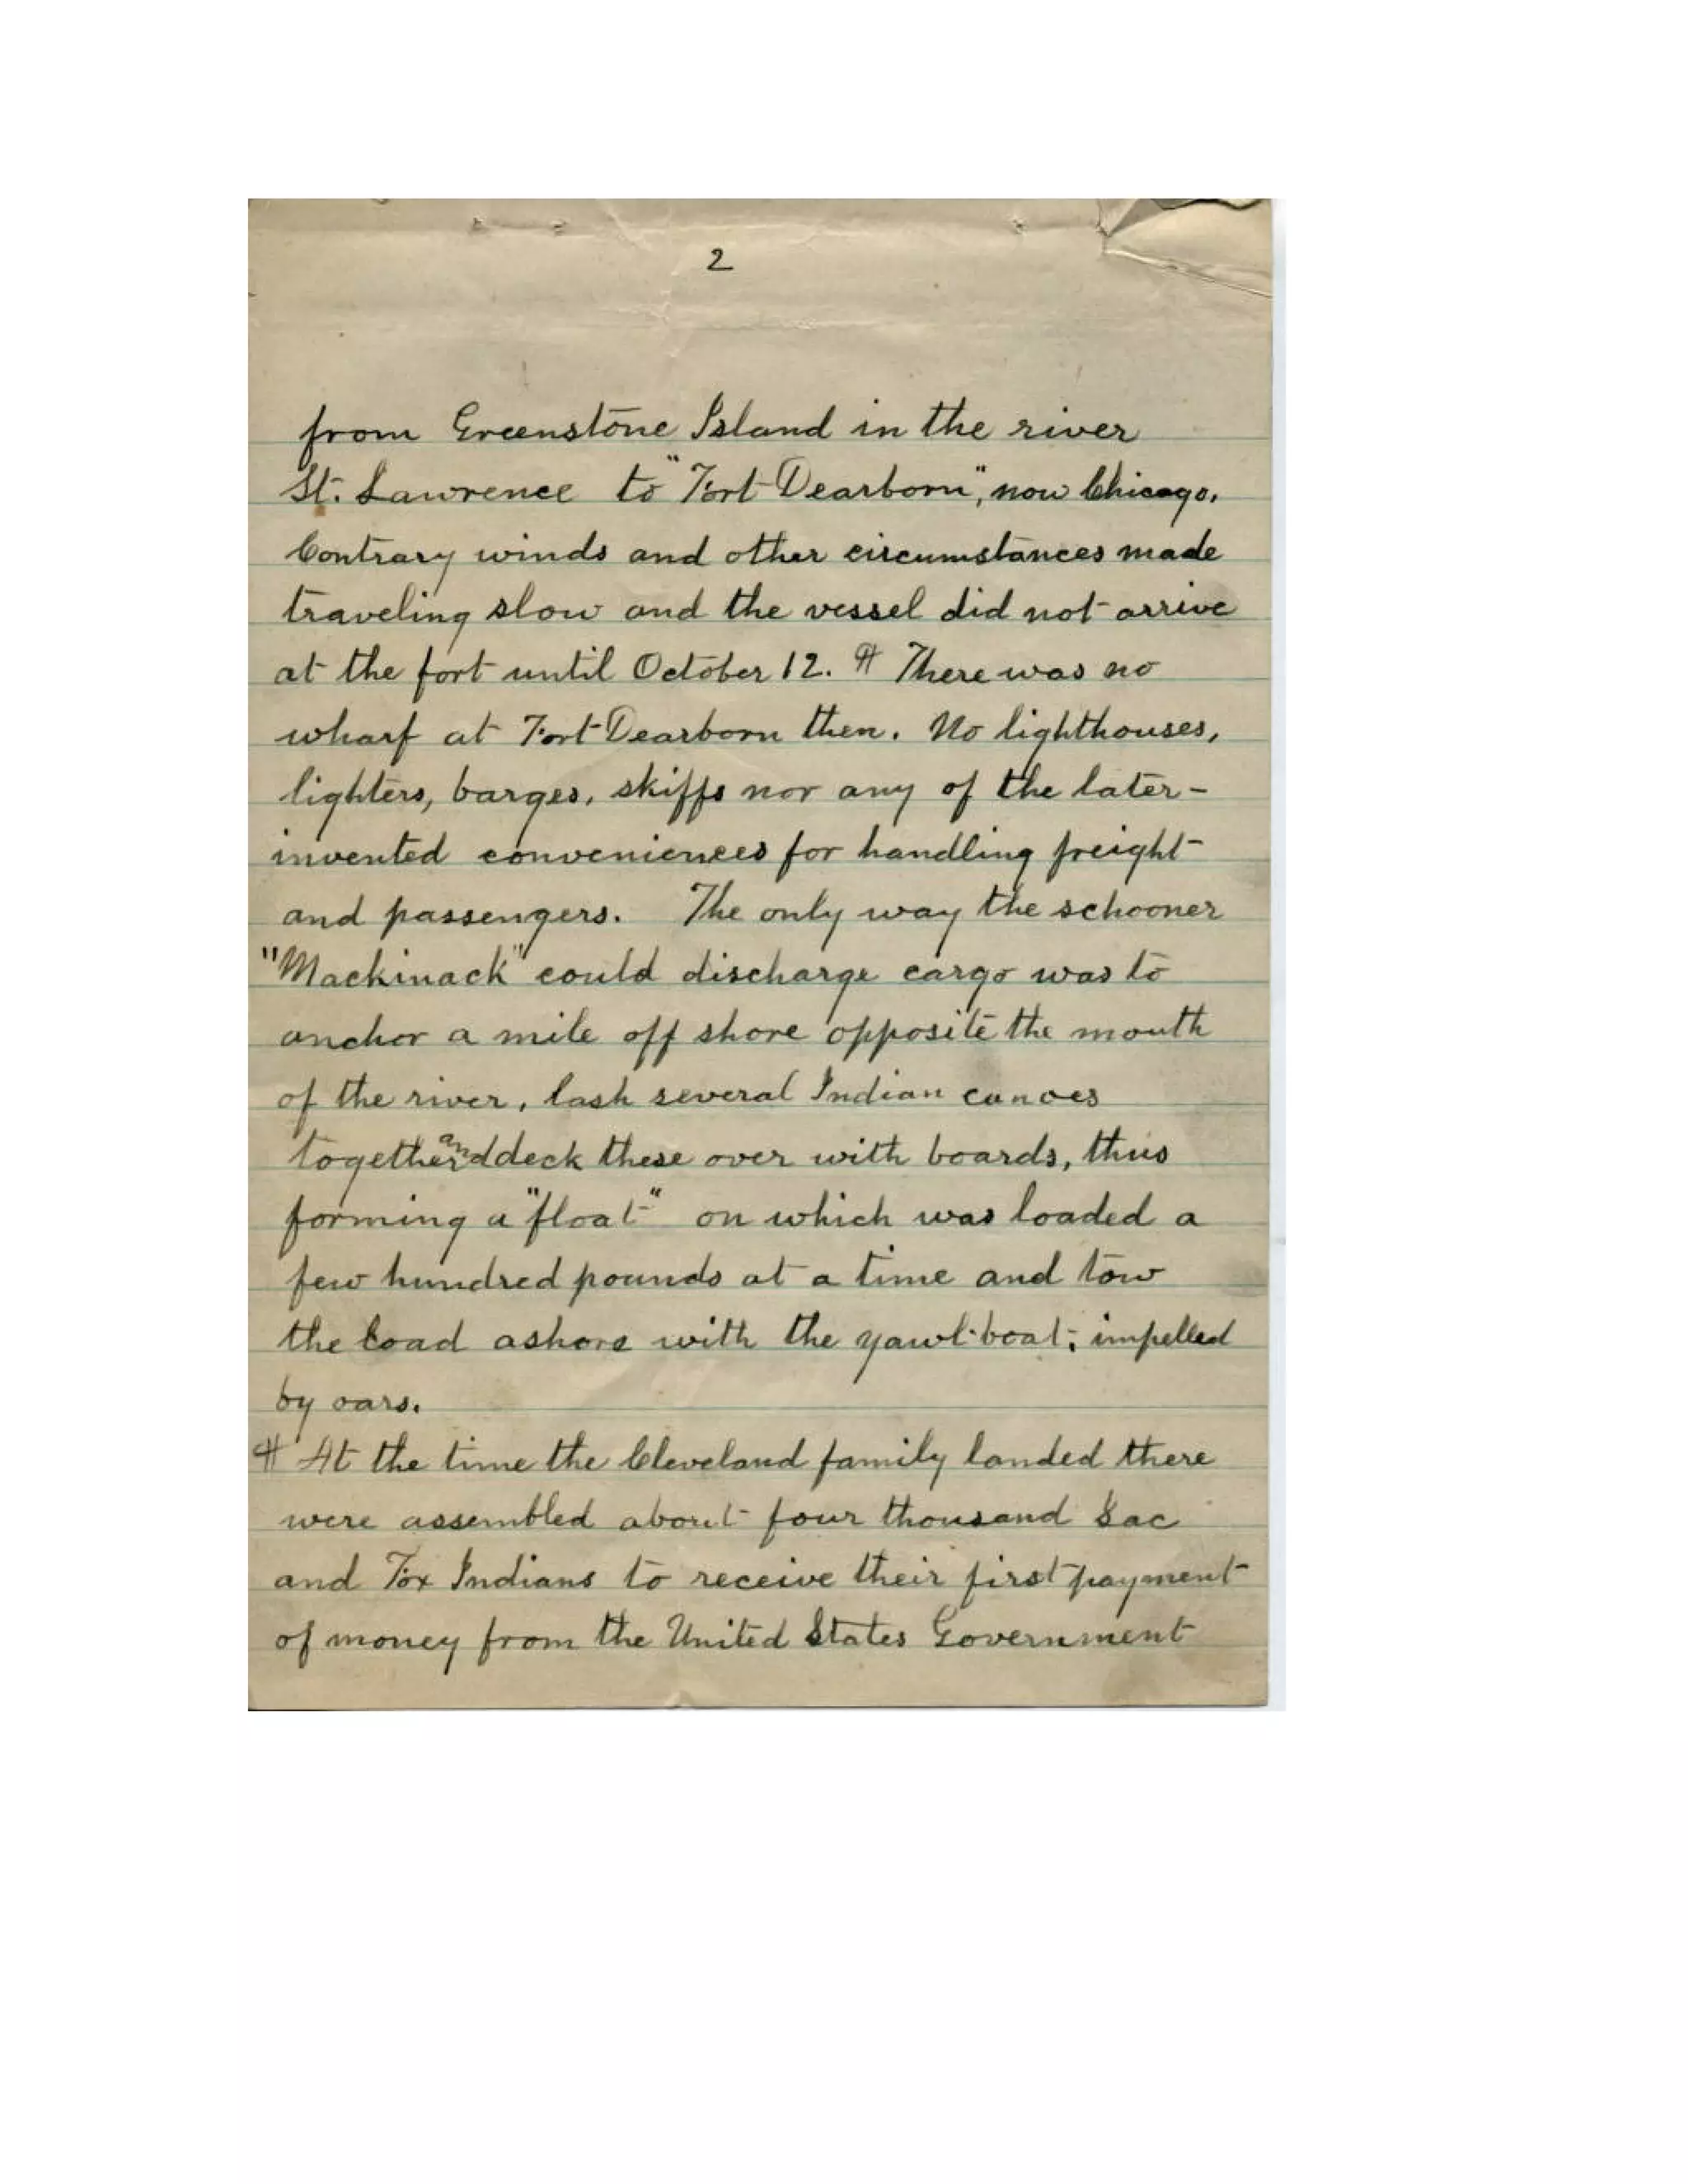 2
from Greenstone Island in the river
St. Lawrence to "Fort Dearborn", now Chicago.
Contrary winds and other circumstances made
traveling slow and the vessel did not arrive
at the fort until October 12. ¶ There was no
wharf at Fort Dearborn then. No lighthouses,
lighters, barges, skiffs nor any of the later-
invented conveniences for handling freight
and passengers. The only way the schooner
"Mackinack" could discharge cargo was to
anchor a mile off shore opposite the mouth
of the river, lash several Indian canoes
together and deck these over with boards, thus
forming a "float" on which was loaded a
few hundred pounds at a time and tow
the load ashore with the yawl-boat, impelled
by oars.
¶ At the time the Cleveland family landed there
were assembled about four thousand Sac
and Fox Indians to receive their first payment
of money from the United States Government